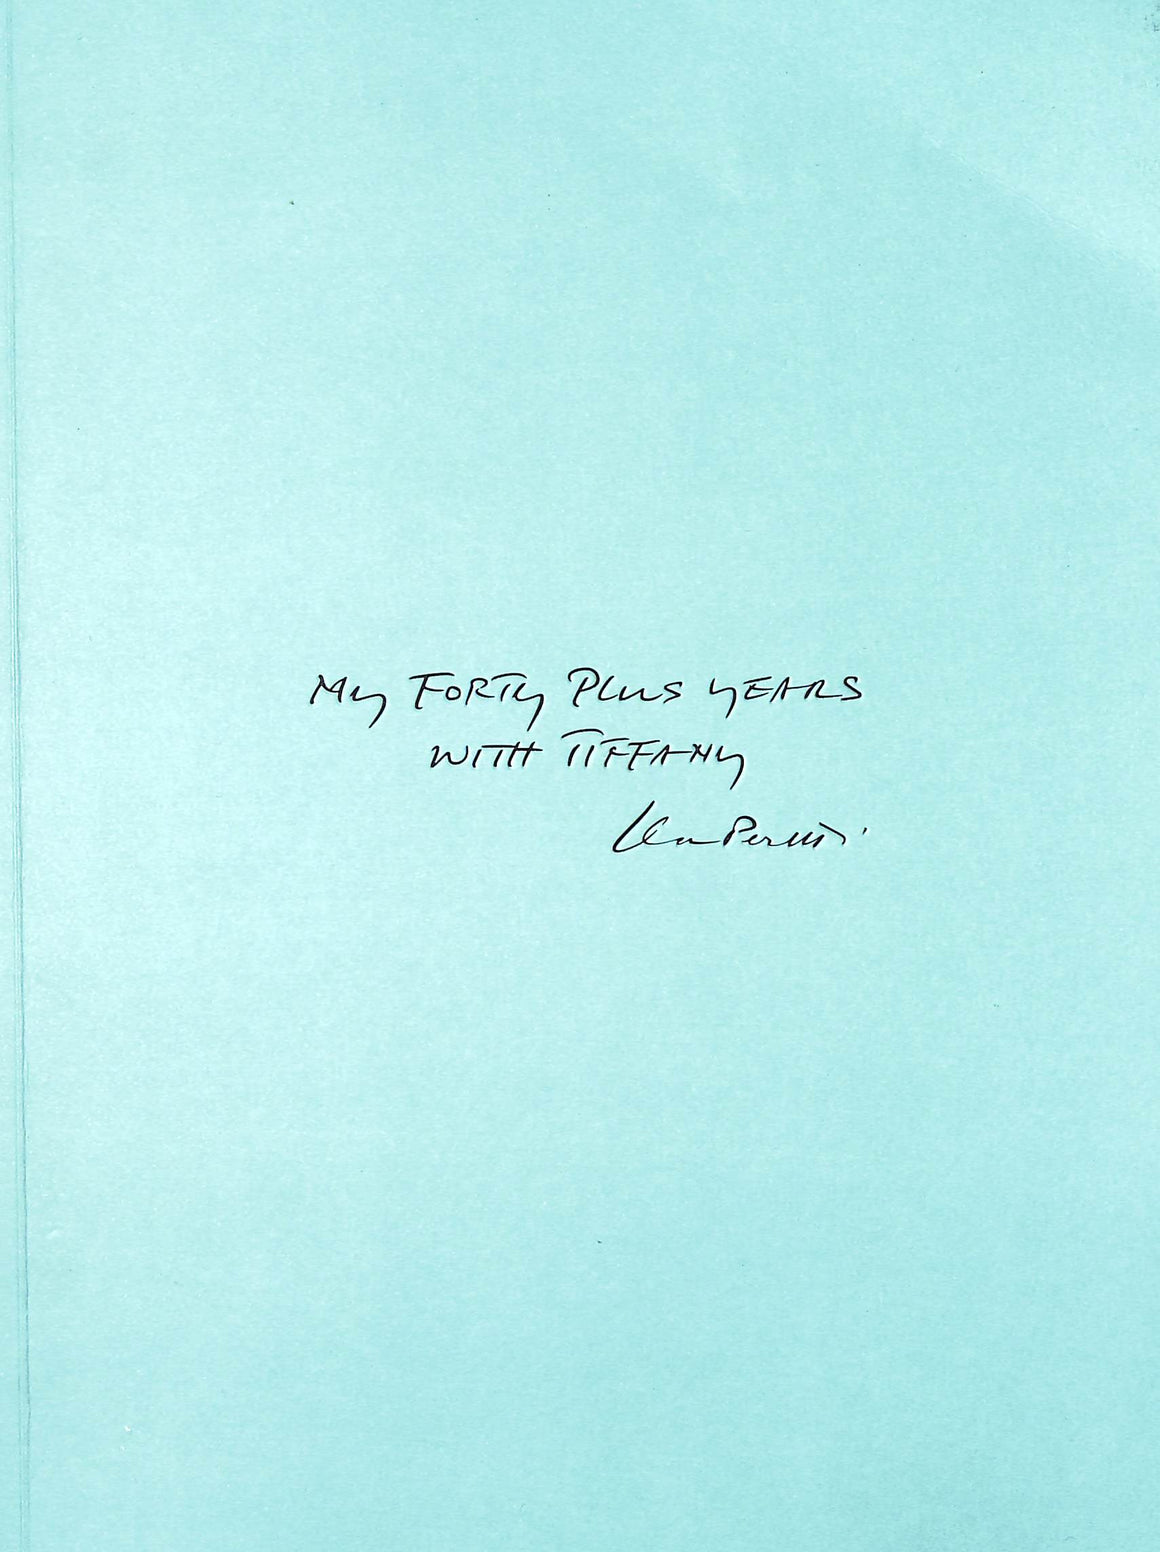 My FORTy PLUS yEARS
WITH TIFFANy
Elsa Peretti